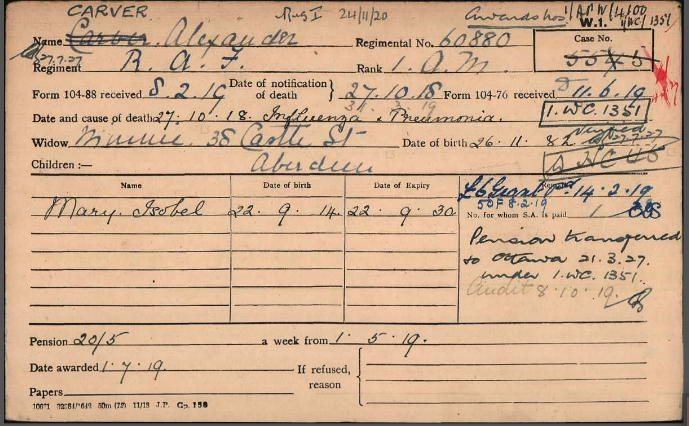 CARVER
Reg I 24/11/20 Awards Nos 1/APW/4100
W.1. 1/WC/1351
Name Carver Alexander Regimental No. 60880 Case No.
27.7.27
Regiment R. A. F. Rank 1. A.M. 5545
Form 104-88 received 8. 2. 19 Date of notification of death } 27. 10. 18 Form 104-76 received 11. 6. 19
31. 3. 19
Date and cause of death 27. 10. 18. Influenza & Pneumonia. 1.WC.1351
Widow Minnie, 38 Castle St Date of birth 26. 11. 82 27.7.27
Children :— Aberdeen
Name Date of birth Date of Expiry
£6 Grant 14.2.19
50F 8.2.19
Mary Isobel 22. 9. 14. 22. 9. 30 No. for whom S.A. is paid 1
Pension transferred
to Ottawa 21.3.27.
under 1.WC.1351.
Audit 8.10.19.
Pension 20/5 a week from 1. 5. 19.
Date awarded 1. 7. 19. If refused, reason {
Papers